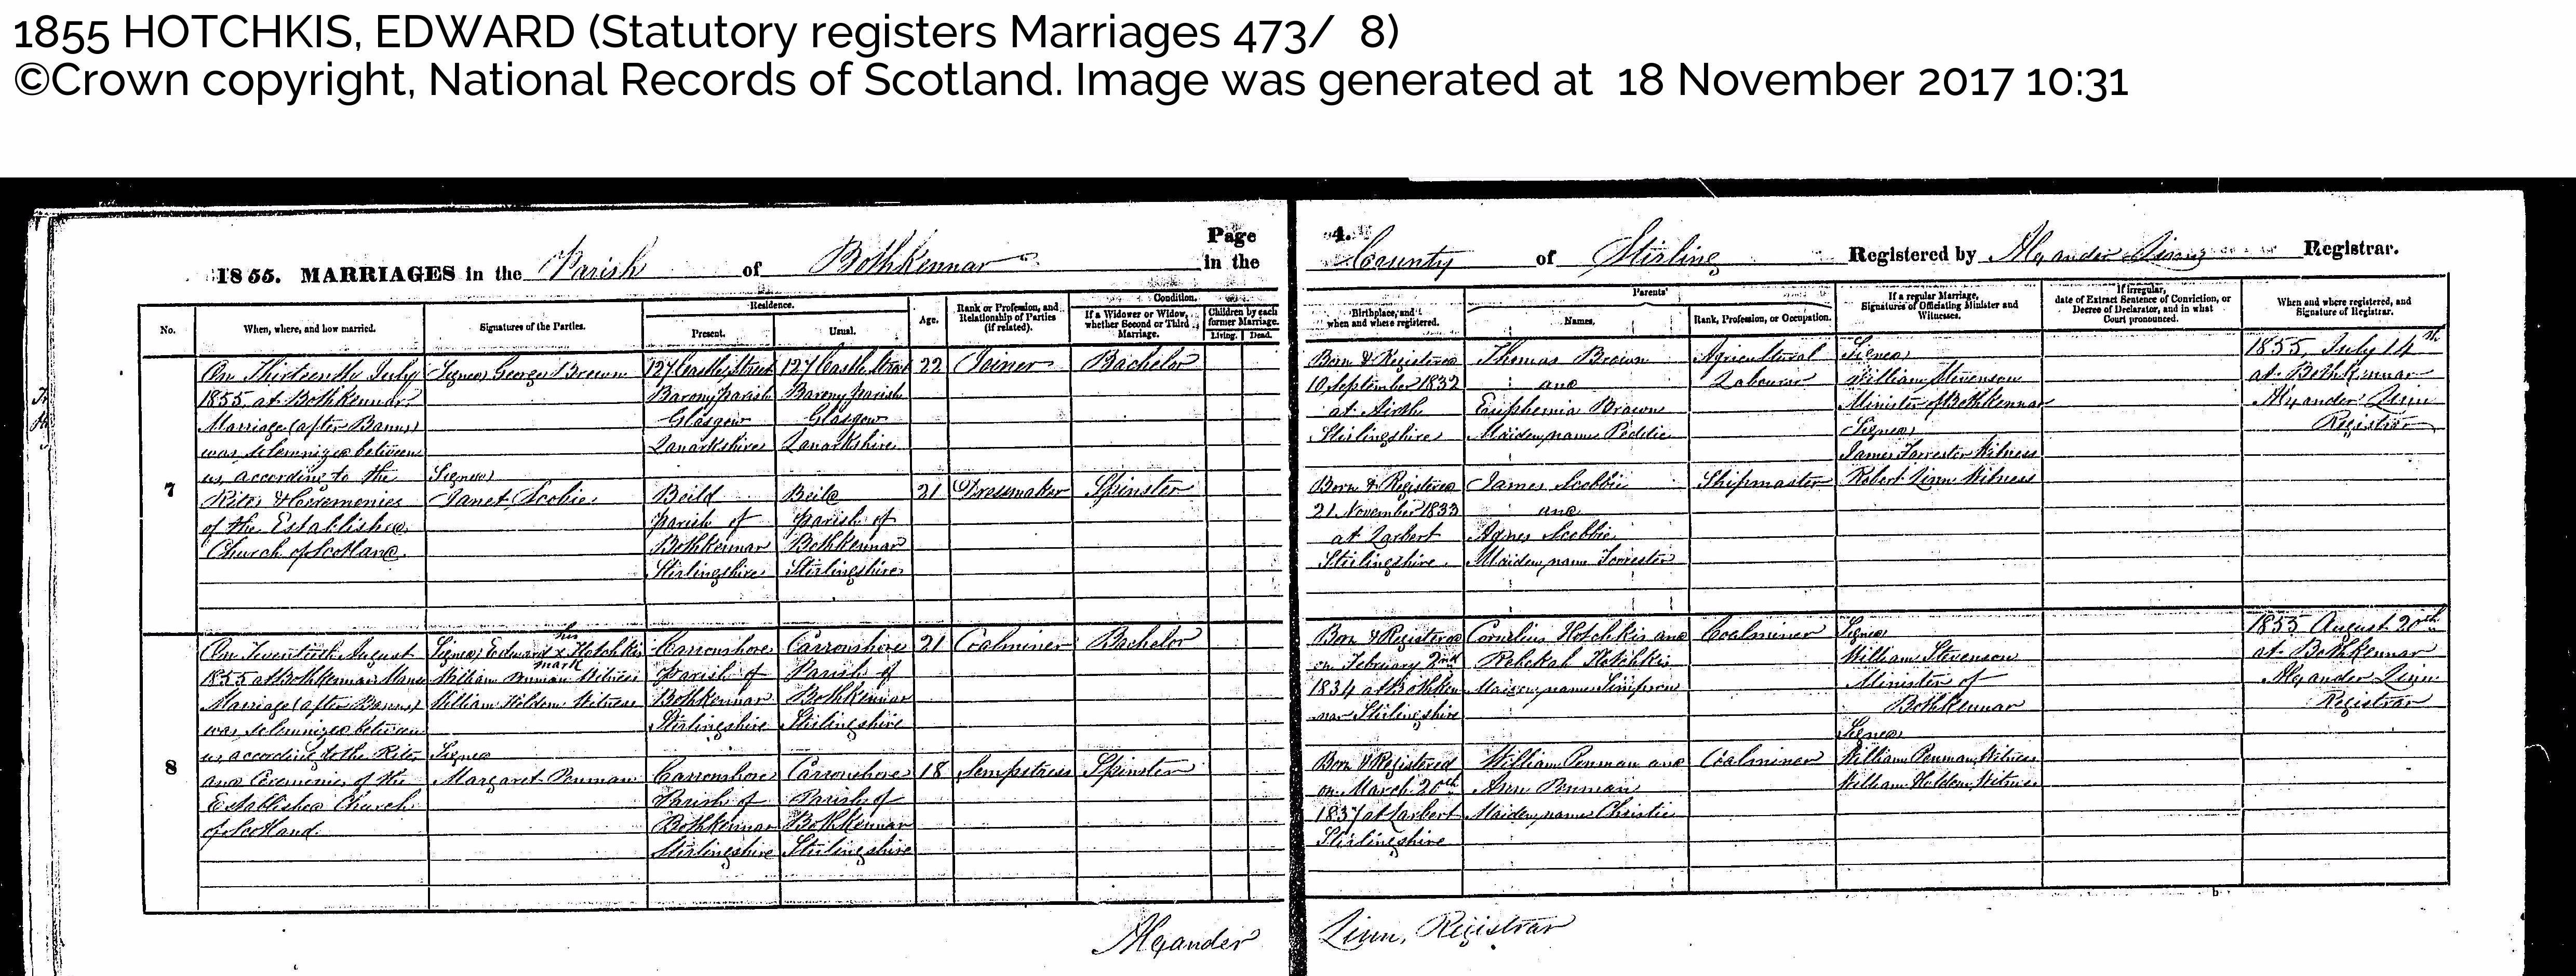 1855 HOTCHKIS, EDWARD (Statutory registers Marriages 473/ 8)
©Crown copyright, National Records of Scotland. Image was generated at 18 November 2017 10:31
Page 4.
1855. MARRIAGES in the Parish of Bothkennar in the County of Stirling Registered by Alexander Linn Registrar.
No.
When, where, and how married.
Signatures of the Parties.
Residence.
Present.
Usual.
Age.
Rank or Profession, and
Relationship of Parties
(if related).
Condition.
If a Widower or Widow,
whether Second or Third
Marriage.
Children by each
former Marriage.
Living.
Dead.
Birthplace, and
when and where registered.
Parents'
Names.
Rank, Profession, or Occupation.
If a regular Marriage,
Signatures of Officiating Minister and
Witnesses.
If irregular,
date of Extract Sentence of Conviction, or
Decree of Declarator, and in what
Court pronounced.
When and where registered, and
Signature of Registrar.
7
On Thirteenth July
1855, at Bothkennar
Marriage (after Banns)
was solemnized between
us according to the
Rites & Ceremonies
of the Established
Church of Scotland
Signed George Brown
127 Castle Street
Barony parish
Glasgow
Lanarkshire
127 Castle Street
Barony parish
Glasgow
Lanarkshire
22
Joiner
Bachelor
Signed
Janet Scobie
Beild
parish of
Bothkennar
Stirlingshire
Beild
parish of
Bothkennar
Stirlingshire
21
Dressmaker
Spinster
Born & Registered
10 September 1832
at Airth
Stirlingshire
Thomas Brown
and
Euphemia Brown
Maiden name Peddie
Agricultural
Labourer
Born & Registered
21 November 1833
at Larbert
Stirlingshire
James Scobbie
and
Agnes Scobbie
Maiden name Forrester
Shipmaster
Signed
William Stevenson
Minister of Bothkennar
Signed
James Forrester Witness
Robert Linn Witness
1855, July 14th
at Bothkennar
Alexander Linn
Registrar
8
On Twentieth August
1855 at Bothkennar Manse
Marriage (after Banns)
was solemnized between
us according to the Rites
and Ceremonies of the
Established Church
of Scotland.
his
Signed Edward x Hotchkis
mark
William Penman Witness
William Holden Witness
Carronshore
Parish of
Bothkennar
Stirlingshire
Carronshore
Parish of
Bothkennar
Stirlingshire
21
Coalminer
Bachelor
Signed
Margaret Penman
Carronshore
Parish of
Bothkennar
Stirlingshire
Carronshore
Parish of
Bothkennar
Stirlingshire
18
Sempstress
Spinster
Born & Registered
on February 2nd
1834 at Bothken
nar Stirlingshire
Cornelius Hotchkis and
Rebekah Hotchkis
Maiden name Simpson
Coalminer
Born & Registered
on March 20th
1837 at Larbert
Stirlingshire
William Penman and
Ann Penman
Maiden name Christie
Coalminer
Signed
William Stevenson
Minister of
Bothkennar
Signed
William Penman Witness
William Holden Witness
1855 August 20th
at Bothkennar
Alexander Linn
Registrar
Alexander Linn, Registrar